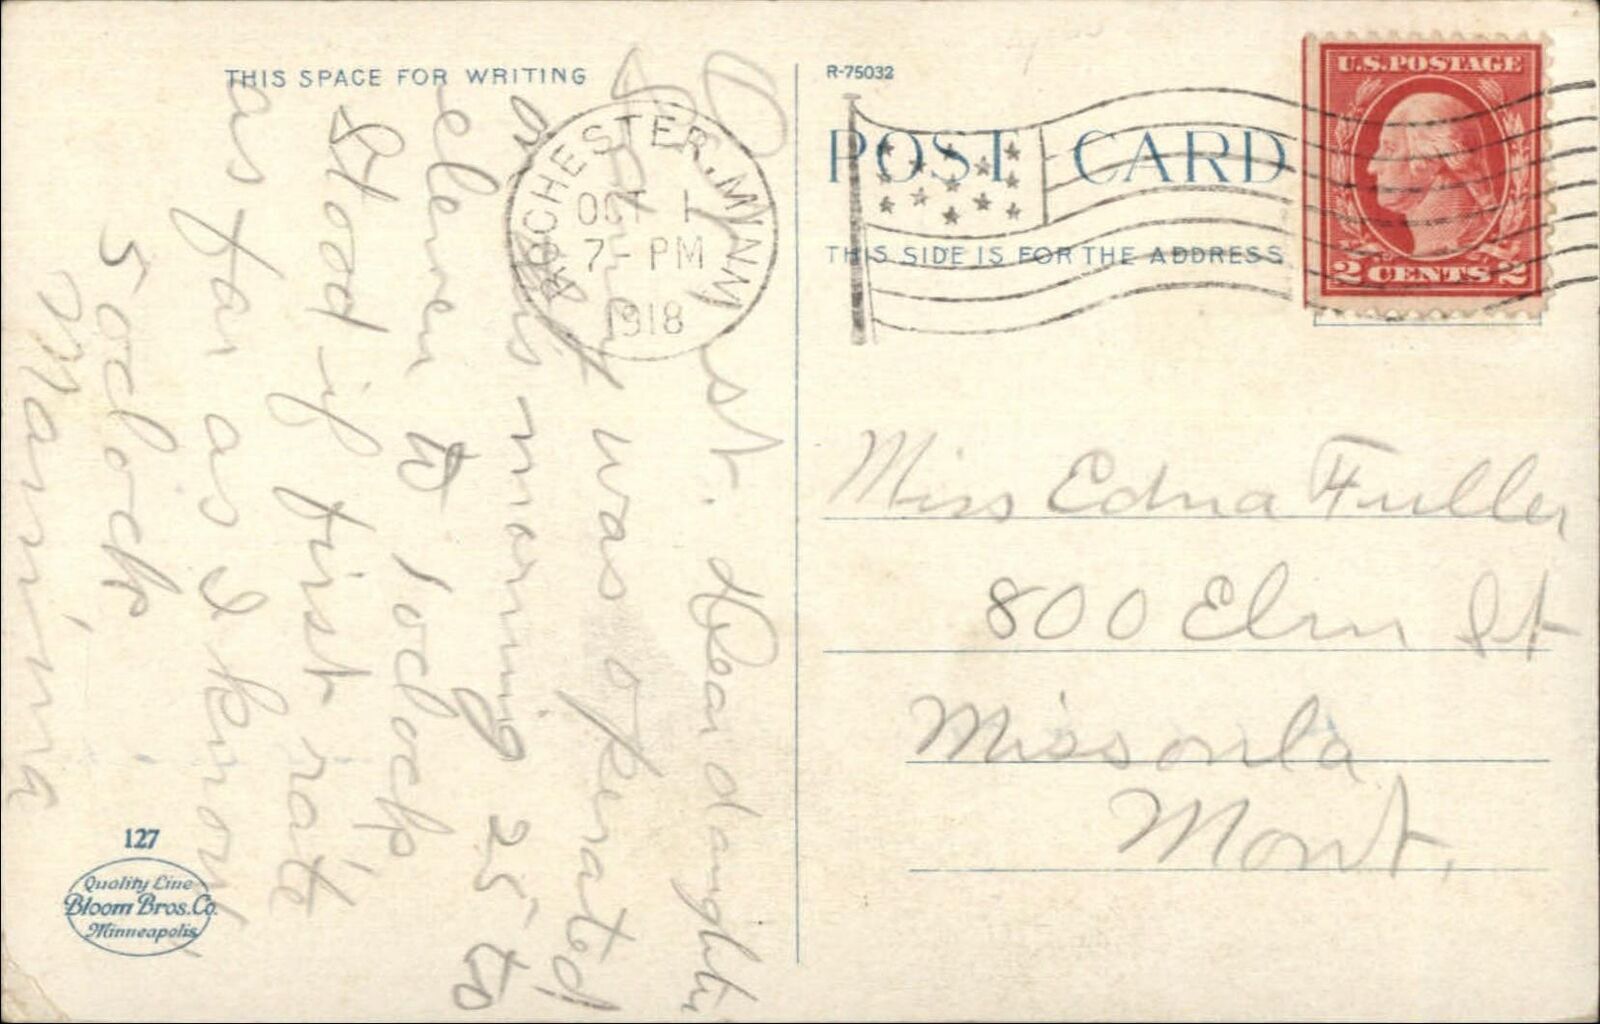 THIS SPACE FOR WRITING
Oct 1st. Dear daughter
was operated
on this morning 25 to
eleven to 1 oclock,
stood it first rate
as far as I know
5 oclock
Mamma
127
Quality Line
Bloom Bros. Co.
Minneapolis
ROCHESTER, MINN
OCT 1
7- PM
1918
R-75032
POST CARD
THIS SIDE IS FOR THE ADDRESS
U.S. POSTAGE
2 CENTS 2
Miss Edna Fuller
800 Elm St
Missoula
Mont.